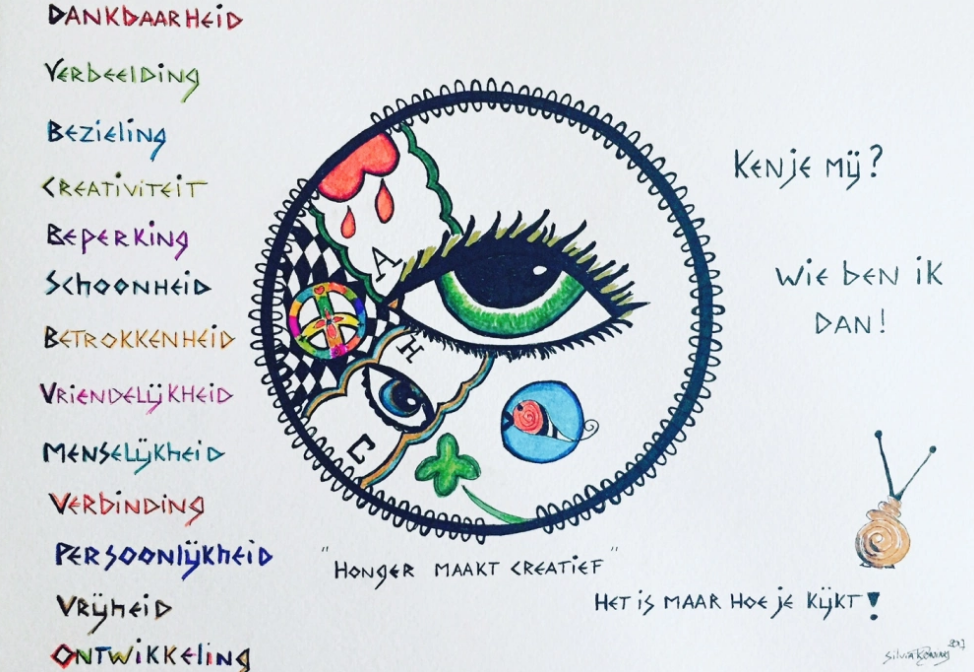 DANKBAARHEID
VERBEELDING
BEZIELING
CREATIVITEIT
BEPERKING
SCHOONHEID
BETROKKENHEID
VRIENDELIJKHEID
MENSELIJKHEID
VERBINDING
PERSOONLIJKHEID
VRIJHEID
ONTWIKKELING
A
H
C
KEN JE MIJ?
WIE BEN IK
DAN!
"HONGER MAAKT CREATIEF"
HET IS MAAR HOE JE KIJKT!
Silvia